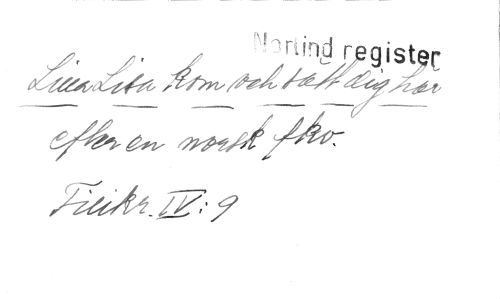 Nortind register
Lilla Lisa kom och sätt dig här
efter en norsk fkv.
Finkr. IV: 9